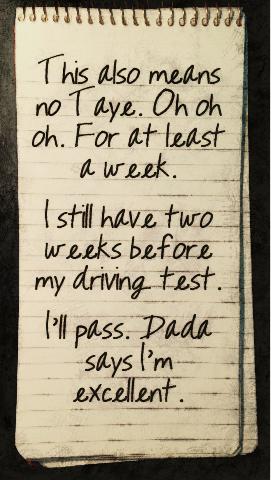 This also means
no Taye. Oh oh
oh. For at least
a week.
I still have two
weeks before
my driving test.
I'll pass. Dada
says I'm
excellent.